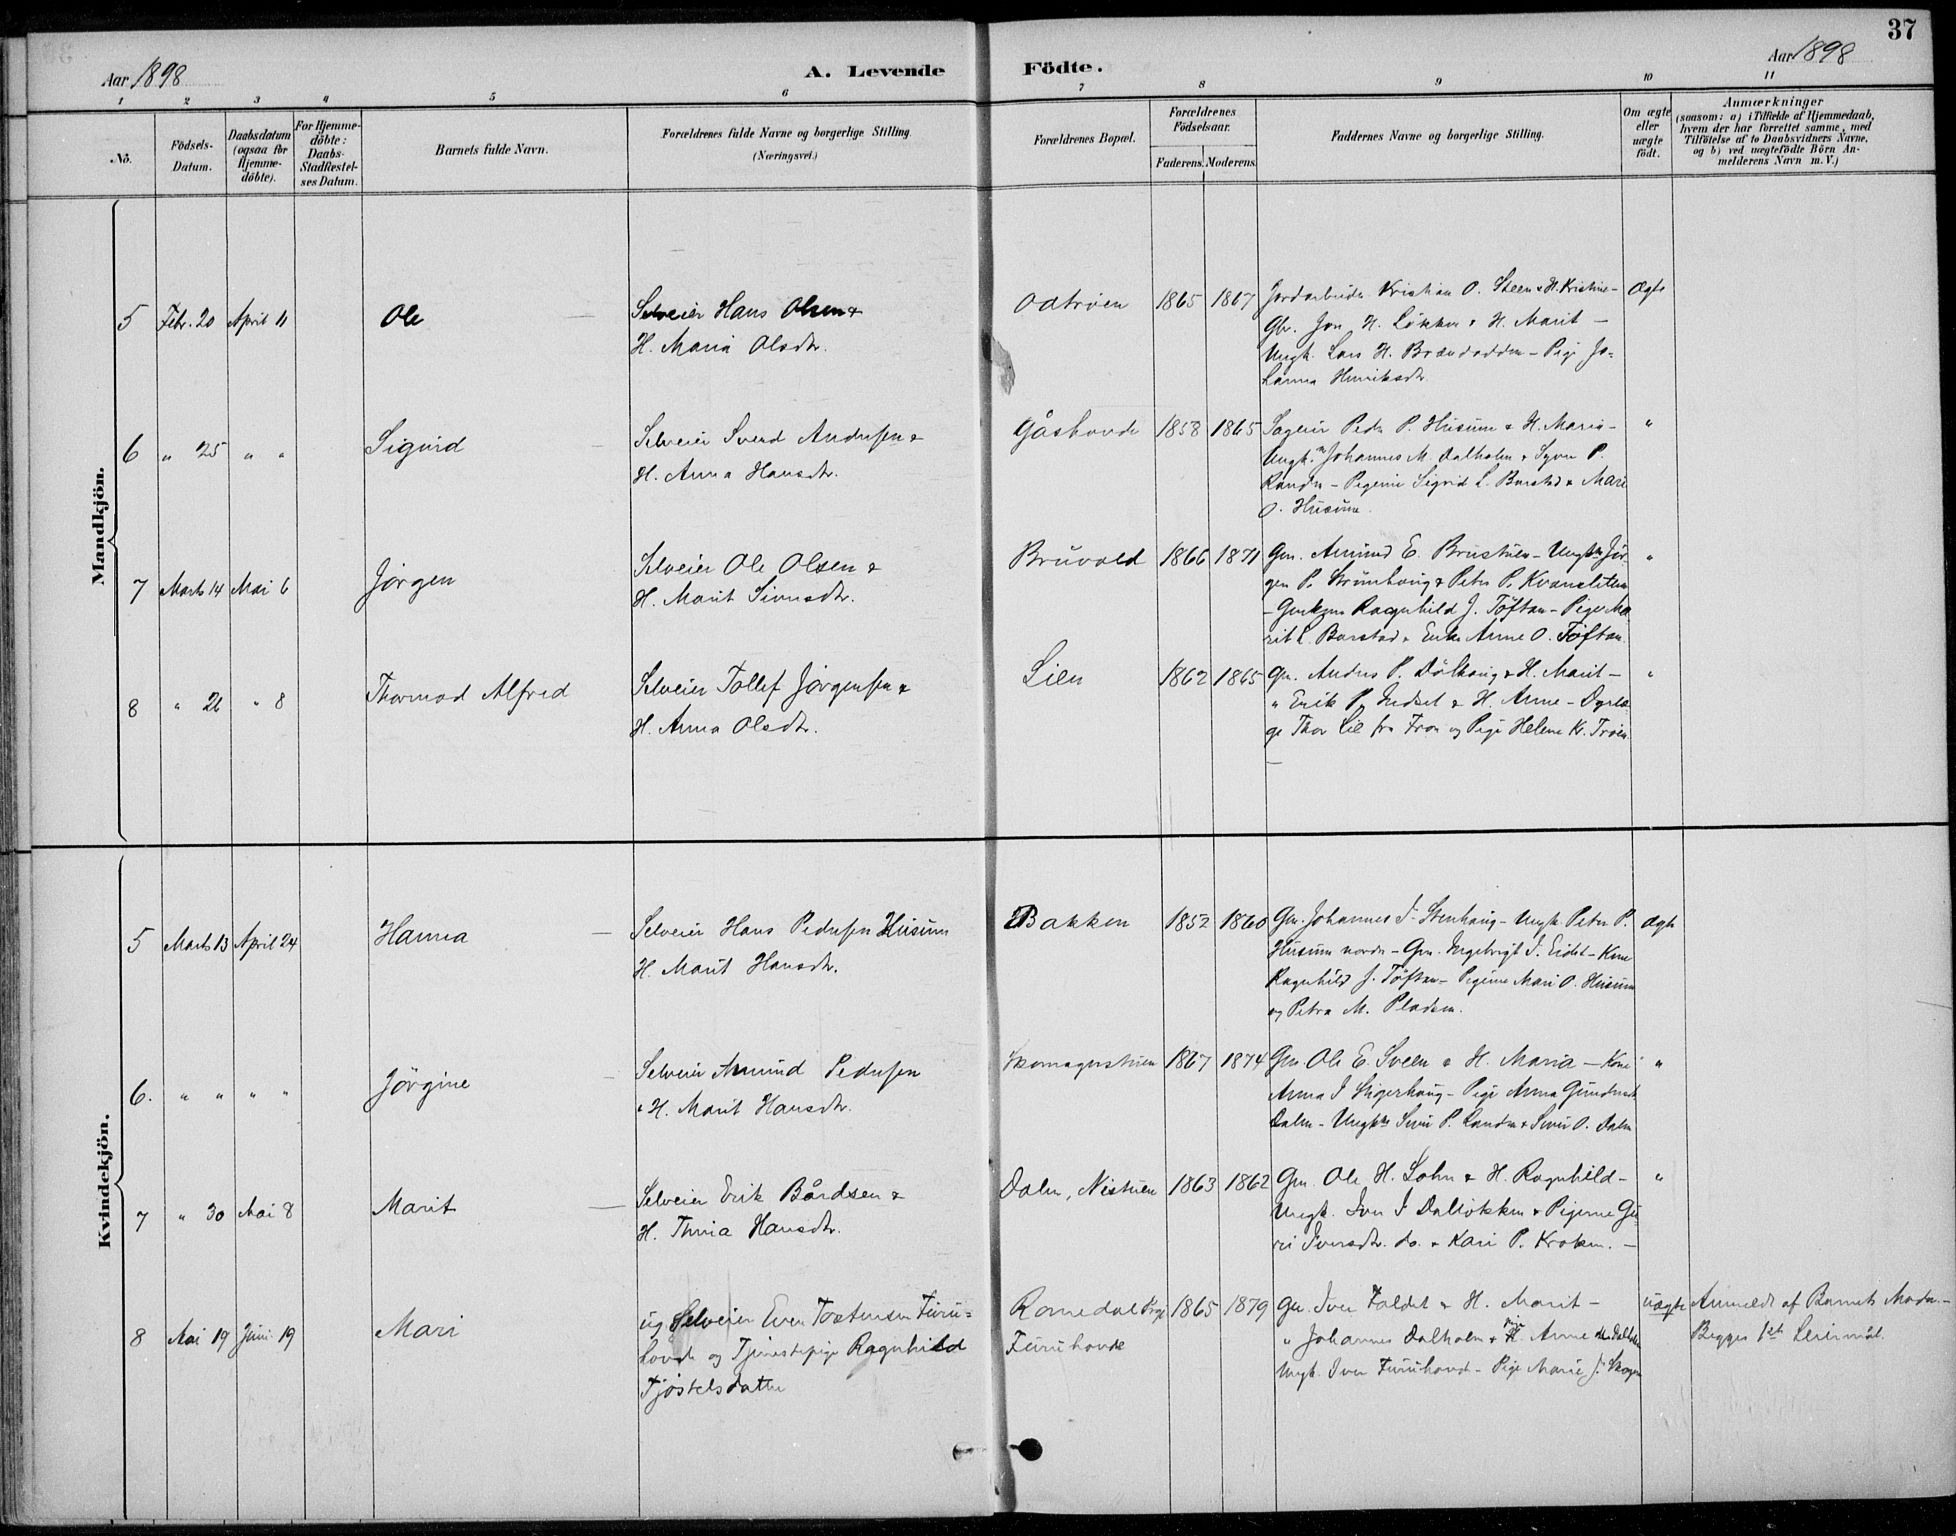 37
Aar 1898
A. Levende Födte.
Aar 1898
1 2 3 4 5 6 7 8 9 10 11
No.
Födsels-Datum.
Daabsdatum (ogsaa for Hjemme-döbte).
For Hjemme-döbte: Daabs-Stadfæstel-ses Datum.
Barnets fulde Navn.
Forældrenes fulde Navne og borgerlige Stilling.
(Næringsvei.)
Forældrenes Bopæl.
Forældrenes Födselsaar.
Faderens. Moderens.
Faddernes Navne og borgerlige Stilling.
Om ægte eller uægte födt.
Anmærkninger
(saasom: a) i Tilfælde af Hjemmedaab,
hvem der har forrettet samme, med
Tilföielse af to Daabsvidners Navne,
og b) ved uægtefödte Börn An-
melderens Navn m. V.)
Mandkjön.
5 Febr. 20 April 11 Ole
Selveier Hans Olsen &
H. Maria Olsdtr.
Odtrøen 1865 1867
Jordarbeider Kristian O. Steen & H. Kristine -
Gbr. Jon H. Løkken & H. Marit -
Ungk. Lars H. Brændodden - Pige Jo-
hanna Henriksdtr.
Ægte
6 " 25 " " Sigurd
Selveier Svend Andersen &
H. Anna Hansdtr.
Gåshovde 1858 1865
Sageier Peder P. Husum & H. Maria -
Ungk. Johannes M. Dalholen & Syver P.
Randen - Pigerne Sigrid L. Borstad & Mari
O. Husum.
"
7 Marts 14 Mai 6 Jørgen
Selveier Ole Olsen &
H. Marit Siversdtr.
Bruvold 1866 1871
Gm. Amund E. Brustuen - Ungk. Jør-
gen P. Strømhaug & Peter P. Kvansliten
- Ragnhild J. Tøftan - Pige Ma-
rit L. Borstad & Enke Anne O. Tøftan.
"
8 " 26 " 8 Thormod Alfred
Selveier Tollef Jørgensen &
H. Anna Olsdtr.
Lien 1862 1865
Gm. Anders P. Dølhaug & H. Marit -
" Erik P. Indset & H. Anne - Dyrlæ-
ge Thor Lie fra Fron og Pige Helene Kr. Trøen.
"
Kvindekjön.
5 Marts 13 April 24 Hanna
Selveier Hans Pedersen Husum
H. Marit Hansdtr.
Bakken 1852 1860
Gm. Johannes J. Stenhaug - Ungk. Peter P.
Husum nordre - Gm. Ingebrigt I. Eidet - Kone
Ragnhild J. Tøftan - Pigerne Mari O. Husum
og Petra M. Pladsen.
Ægte
6. " " " " Jørgine
Selveier Amund Pedersen
& H. Marit Hansdtr.
Skomagerstuen 1867 1874
Gm. Ole E. Sveen & H. Maria - Kone
Anna J Stigerhaug - Pige Anna
Dalen - Ungk. Siver P. Randen & Siver O. Dalen
"
7 " 30 Mai 8 Marit
Selveier Erik Bårdsen &
H. Thria Hansdtr.
Dalen, Nistuen 1863 1862
Gm. Ole H. Lohn & H. Ragnhild -
Ungk. Iver I Daløkken & Pigerne Gu-
ri Iversdtr. do. & Kari P. Kroken. -
"
8 Mai 19 Juni 19 Mari
ug Selveier Even Tostensen Furu-
hovde og Tjenestepige Ragnhild
Tjøstelsdatter
Romedal Prgj
Furuhovde
1865 1879
Gm. Iver Foldet & H. Marit -
" Johannes Dalholen & Pige Anne Dalholen
Ungk. Iver Furuhovd - Pige Marie J. Skogen
Uægte
Anmeldt af Barnets Moder. -
Begges 1ste Leiermål.